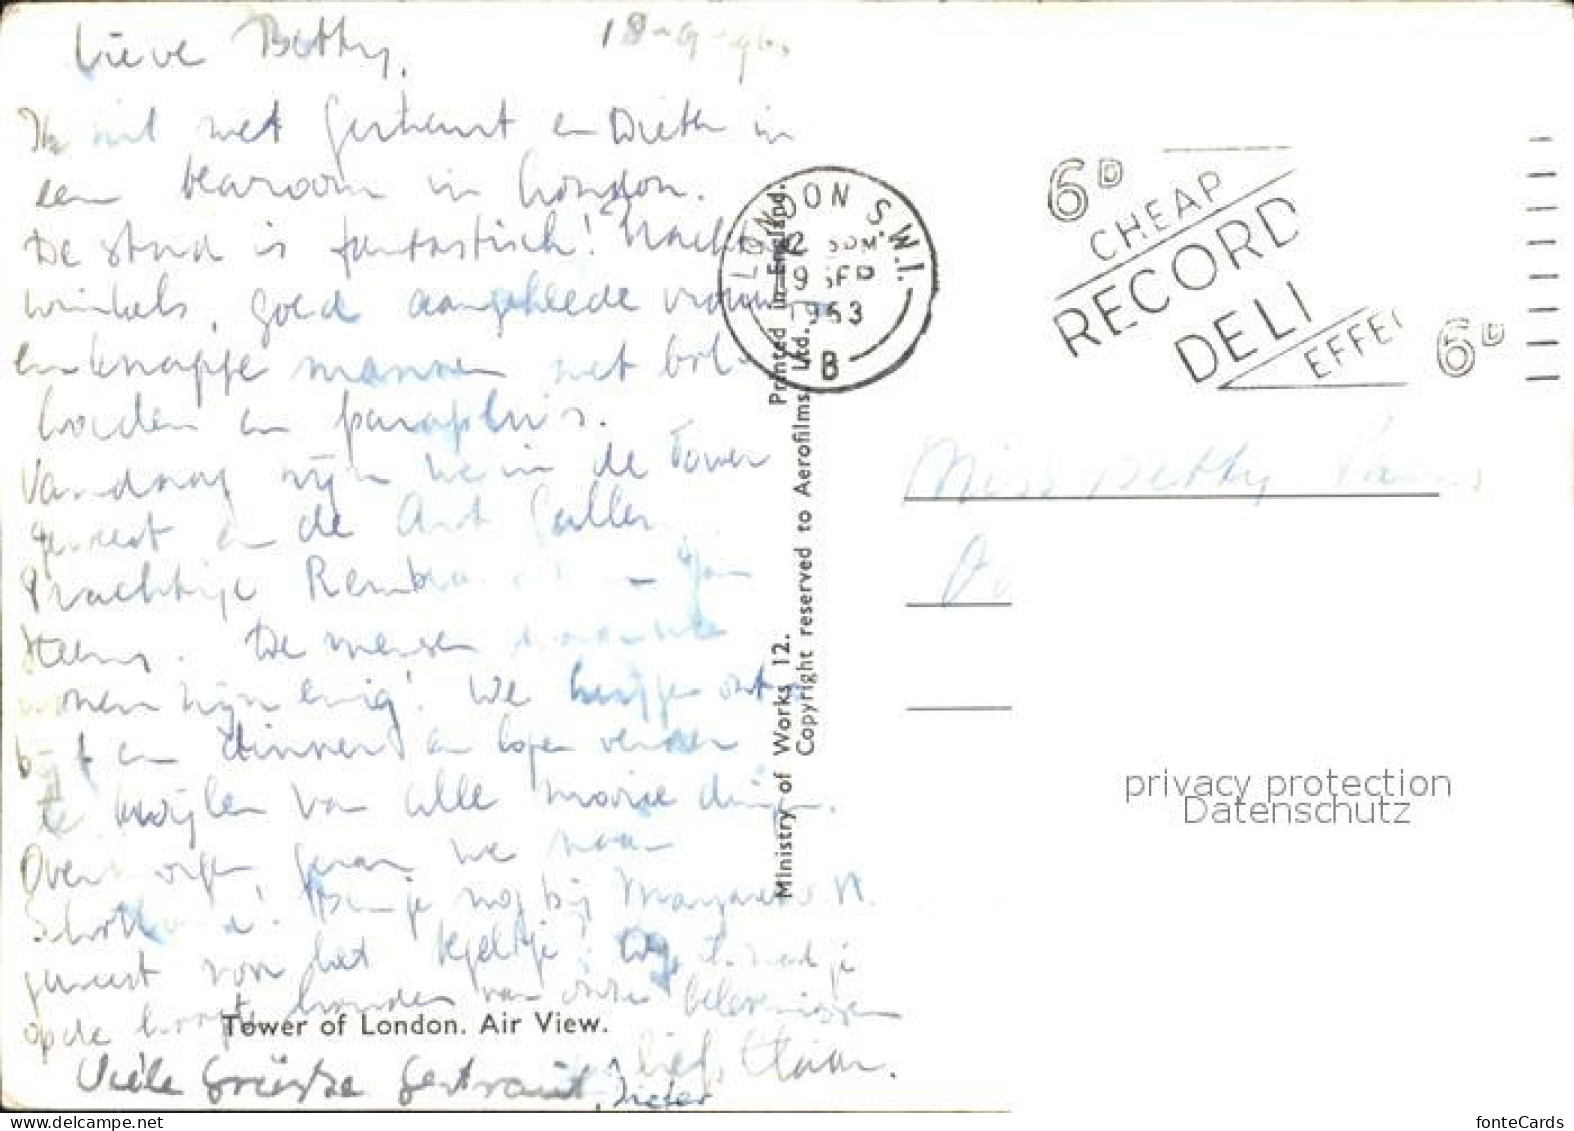 Lieve Betty,
18-9-63
Ik zit met Gertraut en Dieter in
een tearoom in London.
De stad is fantastisch! Nacht
winkels, goed aangeklede vrouwen
en knappe mannen met bol-
hoeden en paraplu's.
Vandaag zijn we in de Tower
geweest en de Art Gallery
Prachtige Rembra - Jan
Steens. De mensen waar we
wonen zijn enig! We krijgen ont
b t en dinner en lopen verder
te kwijlen van alle mooie dingen.
Overmorgen gaan we naar
Schotland! Ben je nog bij Margaret
geweest voor het kjeltje?
op de hoogte houden van onze belevenissen
liefs
Viele Grüsse Gertraut, Dieter
Tower of London. Air View.
Ministry of Works 12.
Printed in England.
Copyright reserved to Aerofilms, Ltd.
LONDON S.W.1.
9 SEP
1963
B
6D
CHEAP
RECORD
DELI
EFFE
6D
Miss Betty
privacy protection
Datenschutz
fonteCards